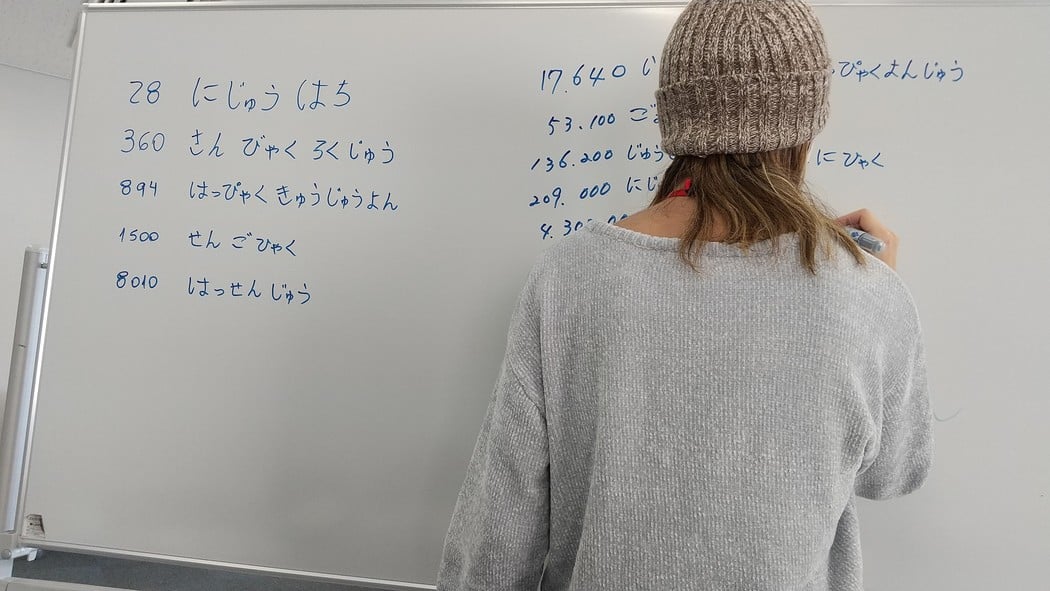 28 にじゅう はち
360 さん びゃく ろくじゅう
894 はっぴゃく きゅうじゅうよん
1500 せん ごひゃく
8010 はっせん じゅう
17.640 じ ぴゃくよんじゅう
53.100 ご
136.200 じゅう にひゃく
209.000 にじ
4.30